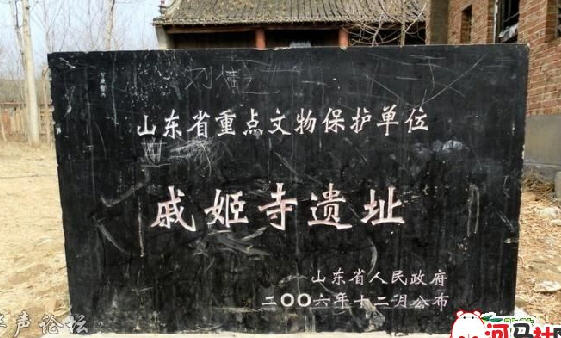 山东省重点文物保护单位
戚姬寺遗址
山东省人民政府
二〇〇六年十二月公布
河马社